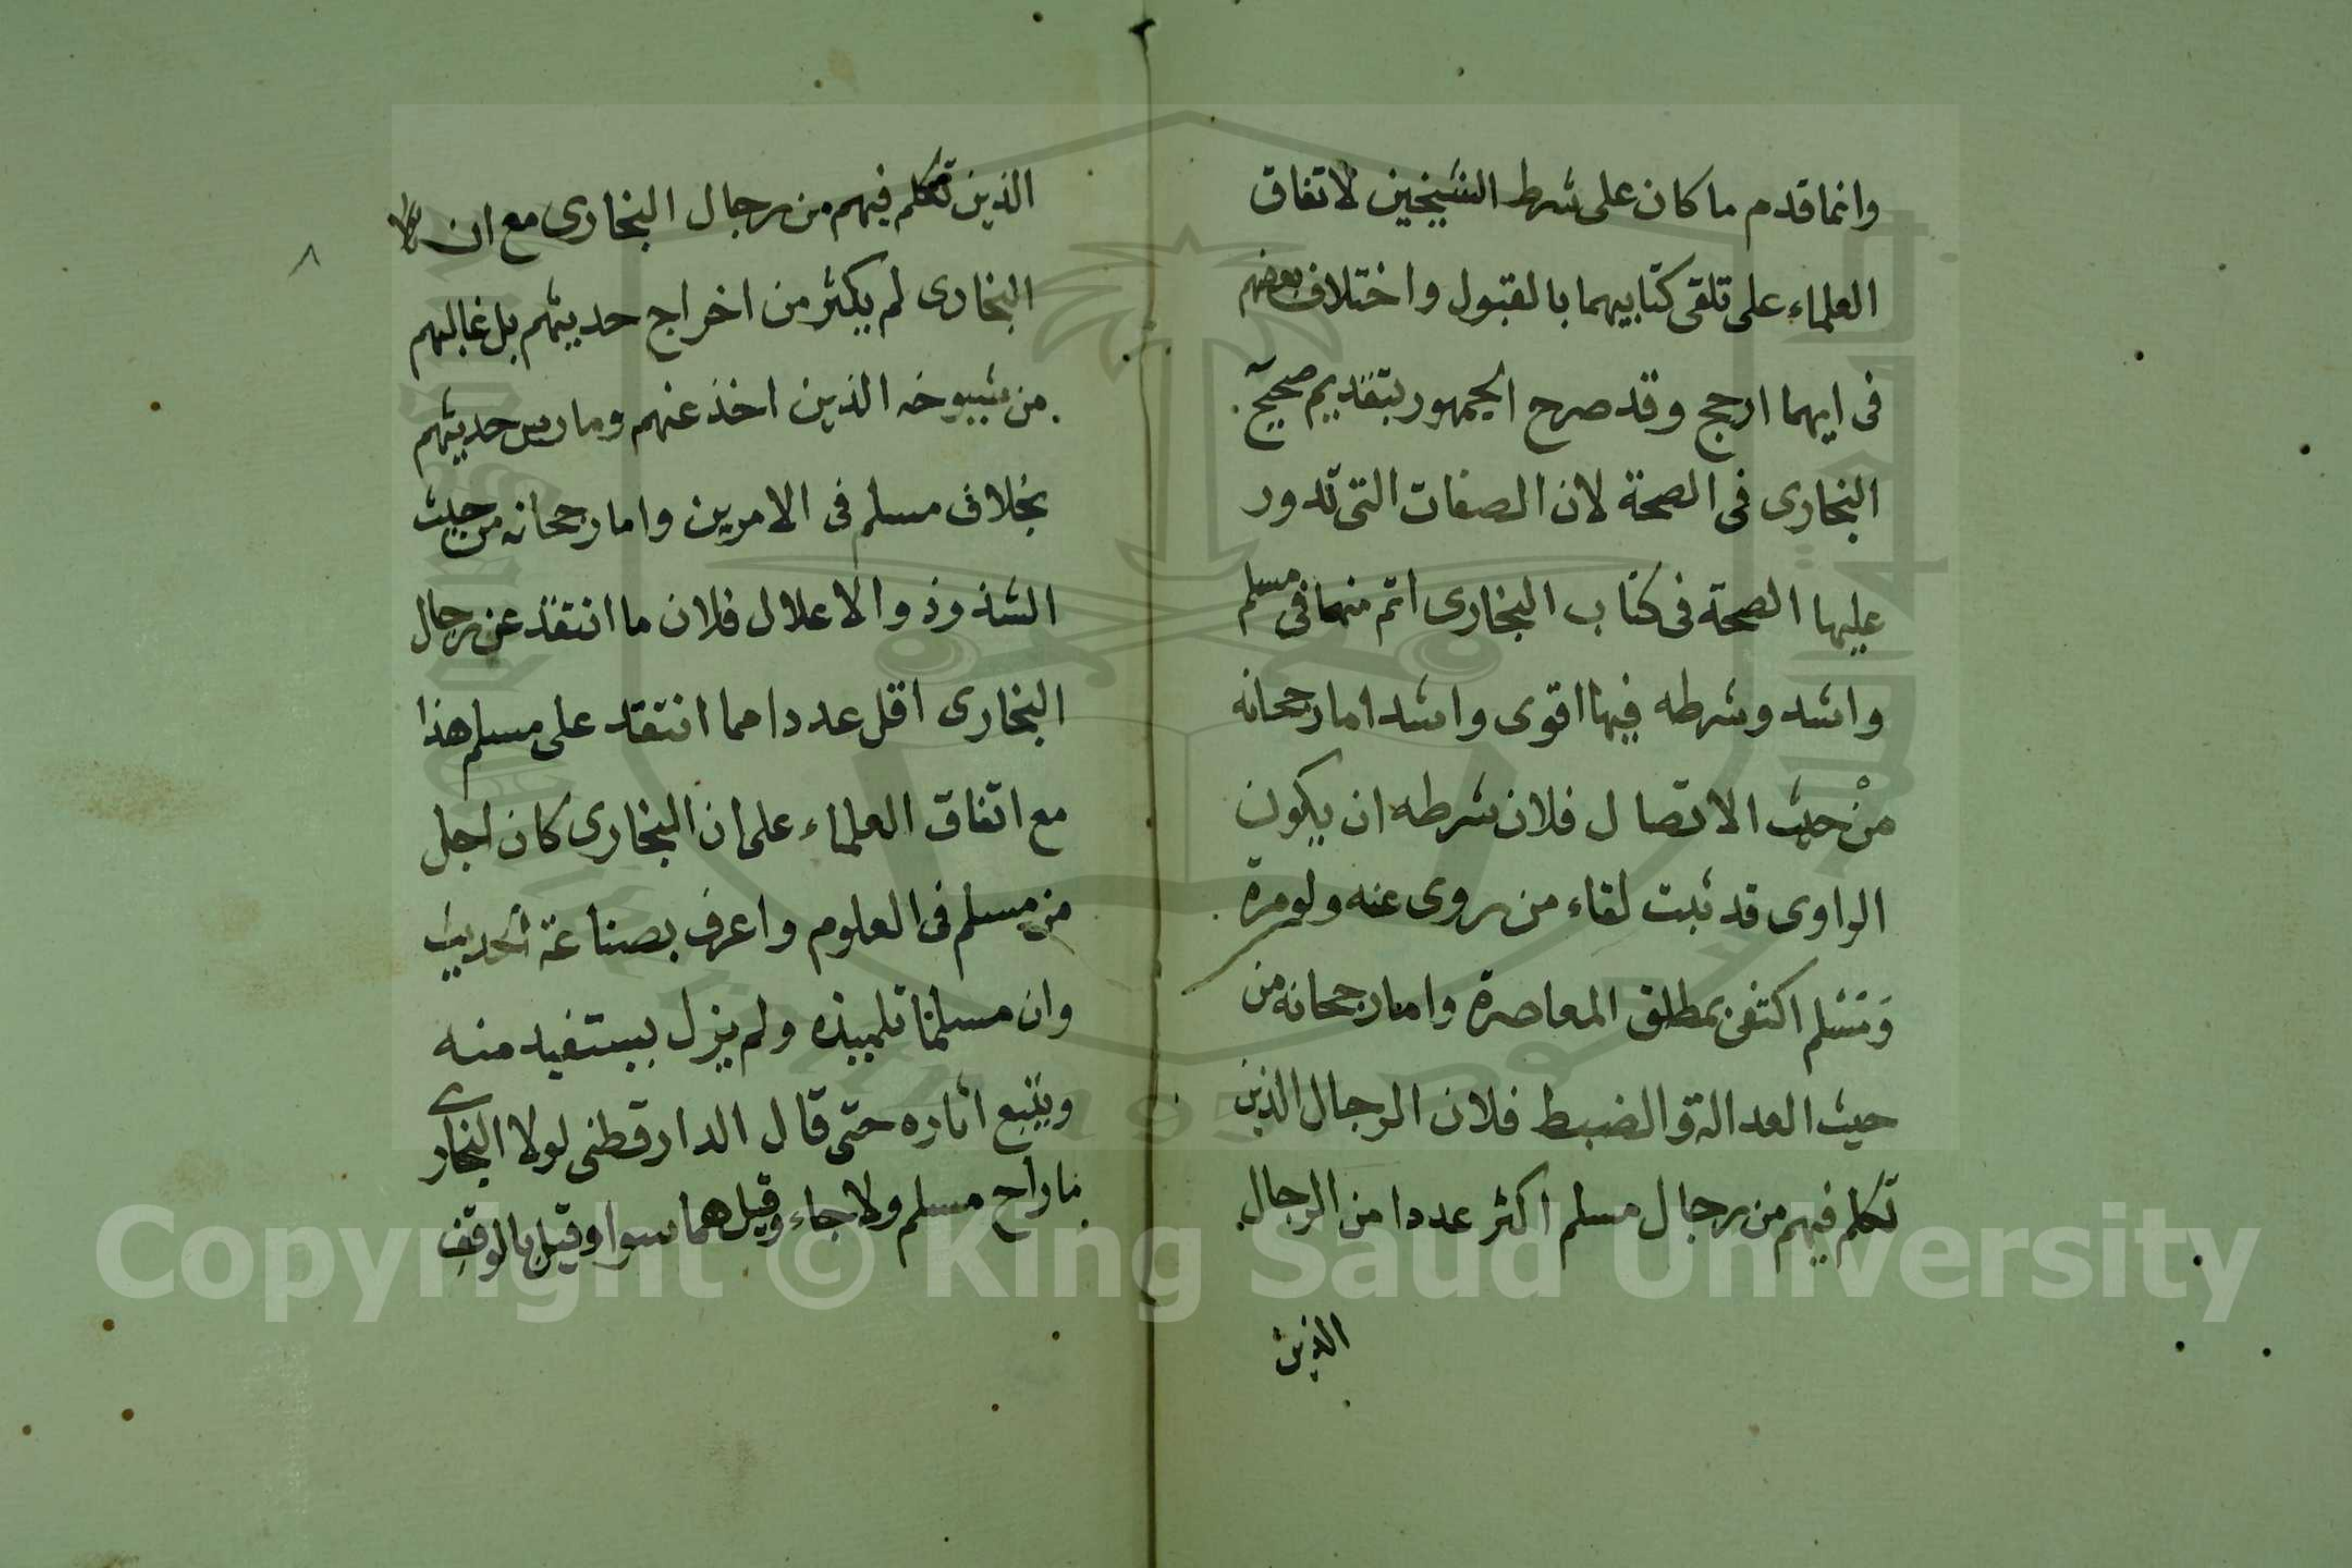 وانما قدم ما كان على شرط الشيخين لاتفاق
العلماء على تلقى كتابيهما بالقبول واختلاف بعضهم
فى ايهما ارجح وقد صرح الجمهور بتقديم صحيح
البخارى فى الصحة لان الصفات التى تدور
عليها الصحة فى كتاب البخارى اتم منها فى مسلم
واشد وشرطه فيها اقوى واشد اما رجحانه
من حيث الاتصال فلان شرطه ان يكون
الراوى قد ثبت لقاء من روى عنه ولو مرة
ومسلم اكتفى بمطلق المعاصرة واما رجحانه من
حيث العدالة والضبط فلان الرجال الذين
تكلم فيهم من رجال مسلم اكثر عددا من الرجال
الذين
الذين تكلم فيهم من رجال البخارى مع ان
البخارى لم يكثر من اخراج حديثهم بل غالبهم
من شيوخه الذين اخذ عنهم ومارس حديثهم
بخلاف مسلم فى الامرين واما رجحانه من حيث
الشذوذ والاعلال فلان ما انتقد عن رجال
البخارى اقل عددا مما انتقد على مسلم هذا
مع اتفاق العلماء على ان البخارى كان اجل
من مسلم فى العلوم واعرف بصناعة الحديث
وان مسلما تلميذه ولم يزل يستفيد منه
ويتبع اثاره حتى قال الدارقطنى لولا البخارى
ما راح مسلم ولا جاء وقيل هما سوا وقيل بالوقف
٨
Copyright © King Saud University